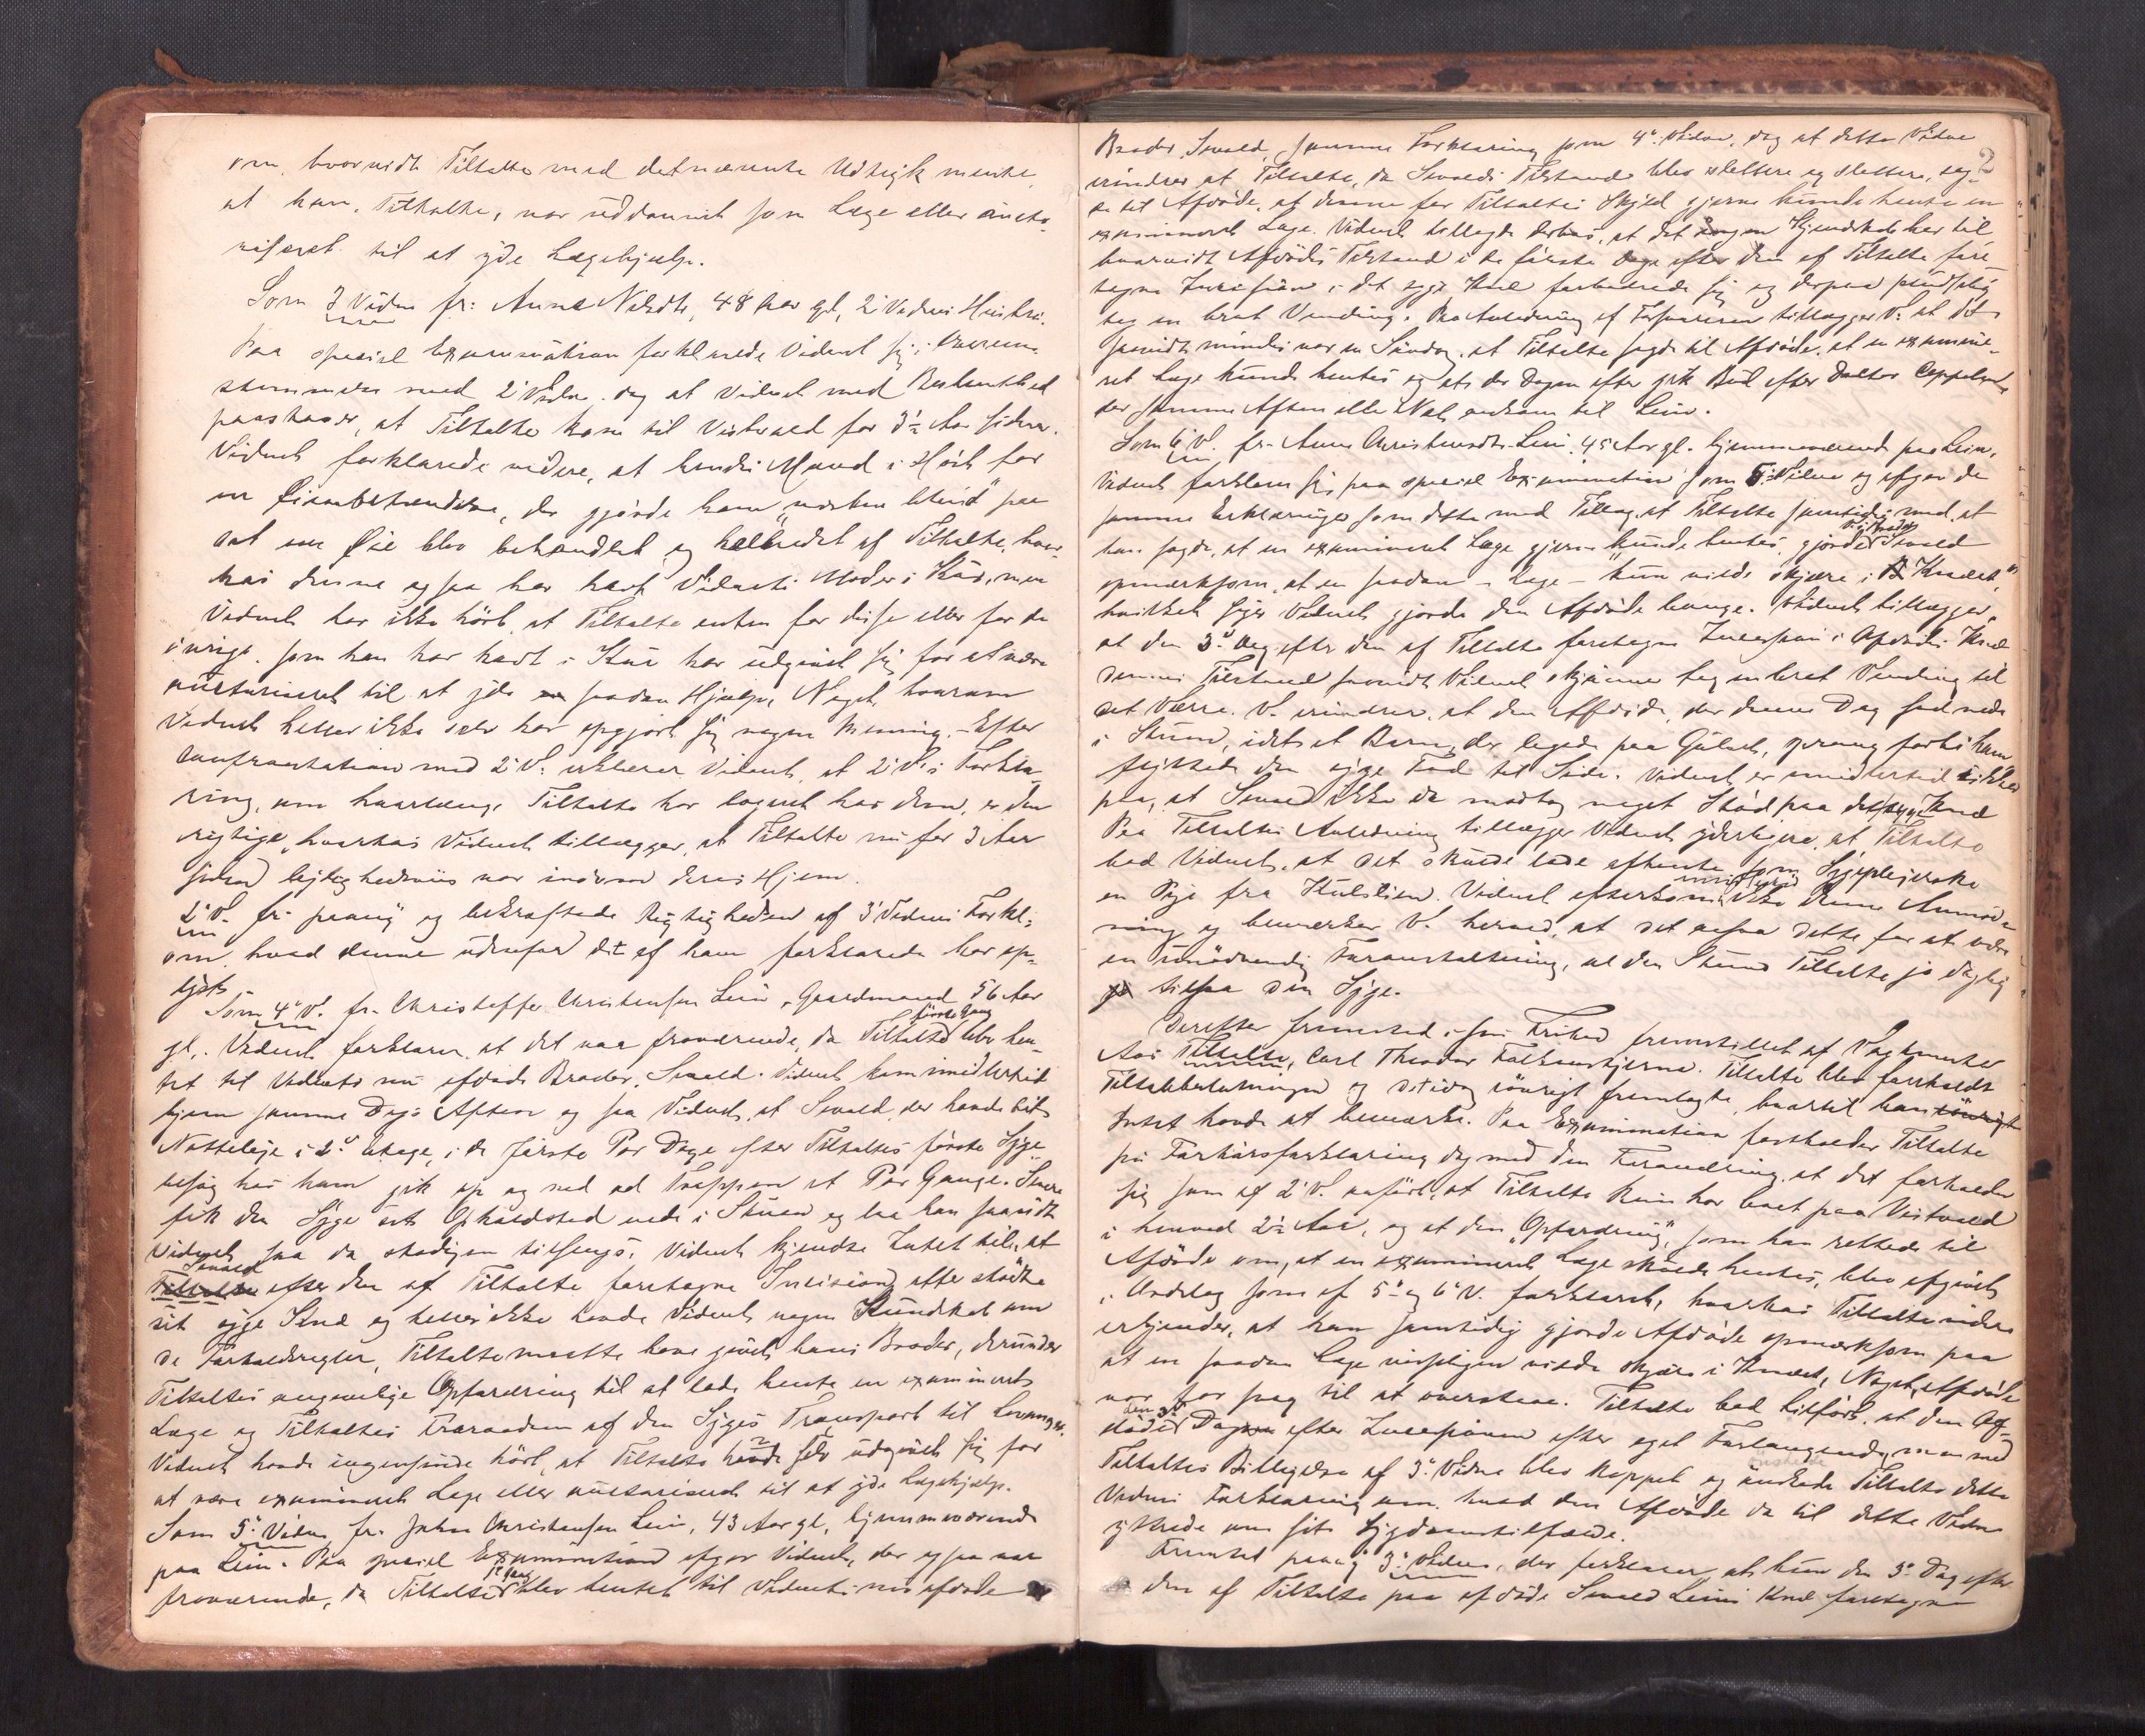 om, hvorvidt Tiltalte med detnævnte Udtryk mente,
at han, Tiltalte, var uddannet som Læge eller aucto-
riseret til at yde Lægehjælp.
Som 3 Vidne fr: Anne Nilsdtr, 48 Aar gl, 2' Vidnes Hustru.
Paa speciel Examination forklarede Vidnet sig i Overens-
stemmelse med 2' Vidne, dog at Vidnet med Bestemthed
paastaaer, at Tiltalte kom til Vistvold for 3½ Aar siden.
Vidnet forklarede videre, at hendes Mand i Høst for
en Øienbetændelse, der gjorde ham "næsten blind" paa
det ene Øie blev behandlet og helbredet af Tiltalte, hvor-
hos denne ogsaa har havt Vidnets Moder i Kur, men
Vidnet har ikke hört, at Tiltalte enten for disse eller for de
övrige, som han har havt i Kur har udgivet sig for at være
auctoriseret til at yde saadan Hjælp, Noget, hvorom
Vidnet heller ikke selv har opgjort sig nogen Mening. - Efter
Confrontation med 2' V. erklærer Vidnet, at 2' V.s Forkla-
ring, om hvorlænge Tiltalte har logeret hos dem, er den
rigtige, hvorhos Vidnet tillægger, at Tiltalte nu for 3 Aar
siden lejlighedsvis var indom deres Hjem.
2' V. fr. paany og bekræftede Rigtigheden af 3' Vidnes Forkl.
om, hvad denne udenfor det af ham forklarede har op-
lyst.
Som 4' V. fr. Christoffer Christensen Lein, Gaardmand 56 Aar
første Gang
gl. Vidnet forklarer, at det var fraværende, da Tiltalte blev hen-
tet til Vidnets nu afdøde Broder, Sevald. Vidnet kom imidlertid
hjem samme Dags Aften og saa Vidnet, at Sevald, der havde sit
Natteleje i 2' Etage, i de første Par Dage efter Tiltaltes første Syge-
besøg hos ham gik op og ned ad Trappen et Par Gange. Senere
fik den Syge sit Opholdssted nede i Stuen og laa han saavidt
Vidnet saa da stadigen tilsengs. Vidnet kjendte Intet til, at
Sevald
Tiltalte efter den af Tiltalte foretagne Incision efter stødte
sit syge Knæ og heller ikke havde Vidnet nogen Kundskab om
de Forholdsregler, Tiltalte maatte have givet hans Broder, derunder
Tiltaltes angivelige Opfordring til at lade hente en examineret
Læge og Tiltaltes Fraraaden af den Syges Transport til Levanger.
Vidnet havde ingensinde hört, at Tiltalte havde udgivet sig for
at være examineret Læge eller auctoriseret til at yde Lægehjælp.
Som 5' Vidne fr. Johan Christensen Lein, 43 Aar gl, hjemmeværende
paa Lein. Paa speciel Examination afgav Vidnet, der ogsaa var
1ste Gang
fraværende, da Tiltalte blev hentet til Vidnets nu afdøde
2
Broder Sevald, samme Forklaring som 4' Vidne, dog at dette Vidne
erindrer at Tiltalte, da Sevalds Tilstand blev slettere og slettere, sag-
de til Afdøde, at denne for Tiltaltes Skyld gjerne kunde hente en
examineret Læge. Vidnet tillagde derhos, at det ingen Kjendskab har til
hvorvidt Afdødes Tilstand i de første Dage efter den af Tiltalte fore-
tagne Incision i det syge Knæ forbedrede sig og derpaa pludselig
tog en brat Vending. Paa Anledning af Forsvareren tillægger V. at det
saavidt mindes var en Søndag, at Tiltalte sagde til Afdøde, at en examine-
ret Læge kunde hentes og at der Dagen efter gik Bud efter Doktor Cappelen,
der samme Aften eller Nat ankom til Lein.
Som 6' V. fr. Anne Christensdtr Lein, 45 Aar gl. hjemmeværende paa Lein.
Vidnet forklarer sig paa speciel Examination som 5' Vidne og afgav de
samme Erklæringer som dette med Tillæg, at Tiltalte samtidig med, at
han sagde, at en examineret Læge gjerne kunde hentes, gjorde Sevald
opmærksom, at en saadan - Læge - kun vilde skjære i Knæet,"
hvilket siger Vidnet gjorde den Afdøde bange. Vidnet tillægger,
at den 3' Dag efter den af Tiltalte foretagne Incision i Afdødes Knæ
dennes Tilstand saavidt Vidnet skjønner tog en brat Vending til
det Værre. V. erindrer, at den Afdøde, der denne Dag sad nede
i Stuen, idet et Barn, der legede paa Gulvet, sprang forbi ham
flyttede den syge Fod til Side. Vidnet er imidlertid sikker
paa, at Sevald ikke da modtog noget Stød paa det syge Knæ
Paa Tiltaltes Anledning tillægger Vidnet yderligere, at Tiltalte
bad Vidnet, at det skulde lade afhente som Sygeplejerske
imidlertid
en Pige fra . Vidnet efterkom ikke denne Anmod-
ning og bemærker V. herved, at det ansaa dette for at være
en unødvendig Foranstaltning, al den Stund Tiltalte jo daglig
tilsaa den Syge.
Derefter fremstod i sin Frihed fremstillet af Vagtmester
Aas Tiltalte, Carl Theodor Falkenstjerna. Tiltalte blev foreholdt
Tiltalebeslutningen og det idag iøvrigt fremlagte, hvortil han
Intet havde at bemærke. Paa Examination fastholder Tiltalte
sin Forhørsforklaring dog med den Forandring, at det forholder
sig som af 2' V. anført, at Tiltalte kun har boet paa Vistvold
i henved 2½ Aar, og at den "Opfordring", som han rettede til
Afdøde om, at en examineret Læge skulde hentes, blev afgivet
i Ordelag som af 5' og 6' V. forklaret, hvorhos Tiltalte videre
erkjender, at han samtidig gjorde Afdøde opmærksom paa
at en saadan Læge vilde skjære i Knæet, Noget, Afdøde
var for svag til at overstaae. Tiltalte bad tilført, at den Af-
døde Dagen efter Incisionen efter eget Forlangende, men med
Tiltaltes Billigelse af 3' Vidne blev koppet og ønskede Tiltalte dette
Vidnes Forklaring om, hvad den Afdøde da til dette Vidne
ytrede om sit Sygdomstilfælde.
Fremtraadt paany 3' Vidne, der forklarer, at hun den 3' Dag efter
den af Tiltalte paa afdøde Sevald Leins Knæ foretagne